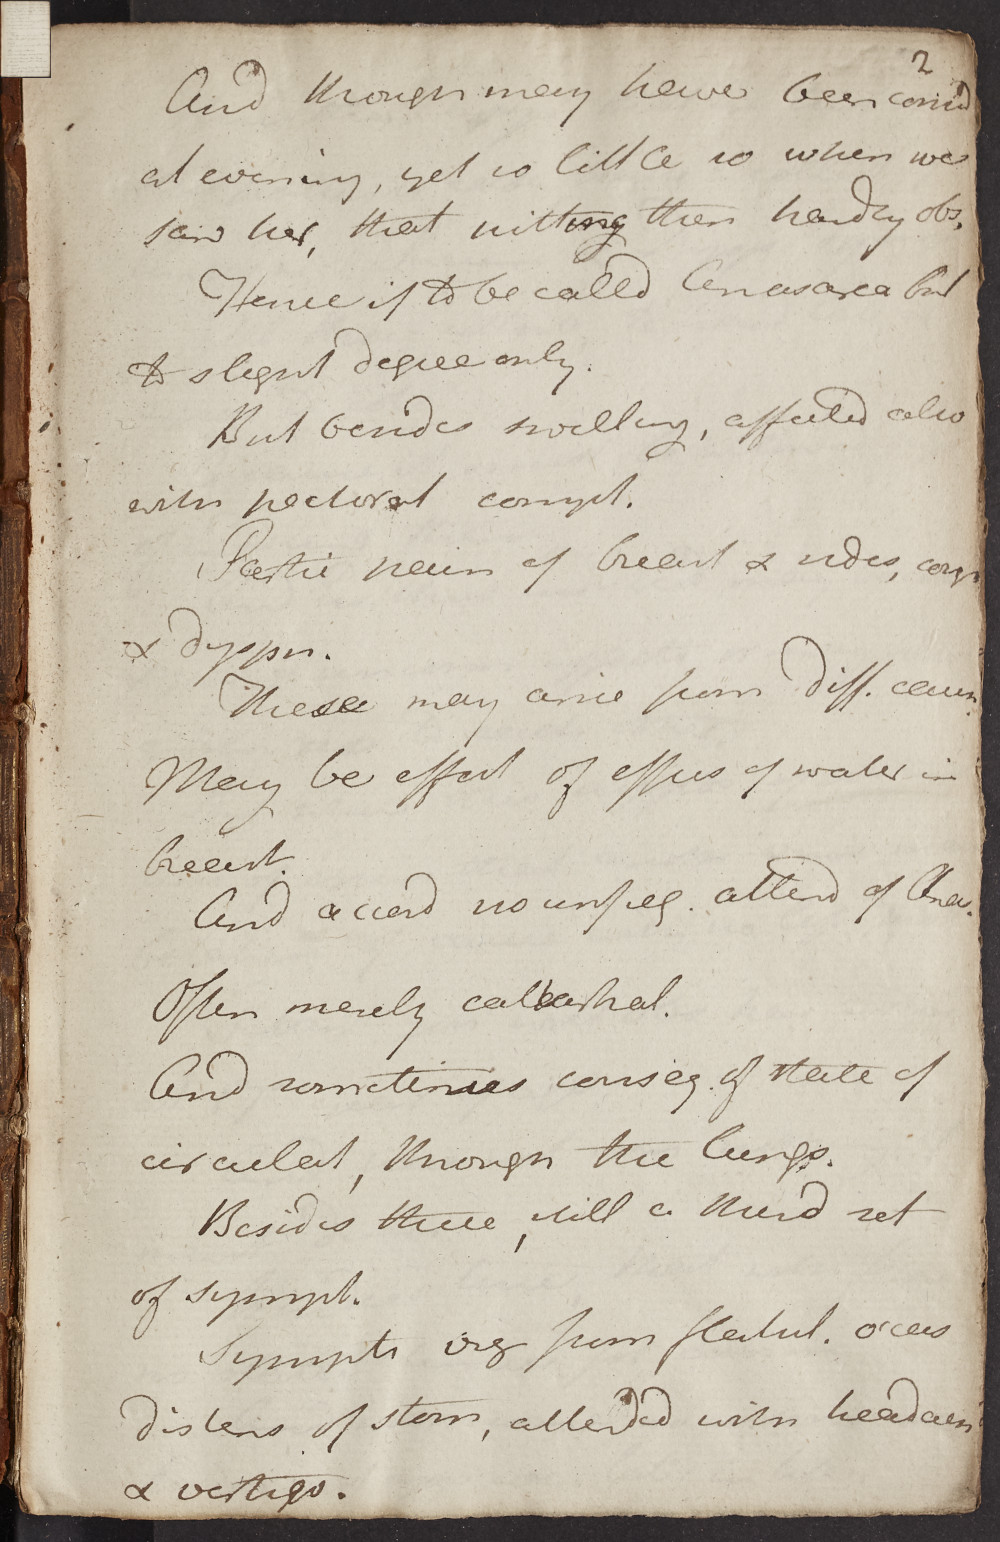 2
And though may have been consid
at evening, yet so little so when we
saw her, that nitting then hardly obs.
Hence if to be called Anasarca but
to slight degree only.
But besides swelling, affected also
with pectoral compt.
Partic pain of breast & sides, cough
& dyspn.
These may arise from diff. causes
May be effect of effus of water in
breast.
And accord no unfreq. attend of Anas.
Often merely catarrhal.
And sometimes conseq. of state of
circulat, through the lungs.
Besides these, still a third set
of sympt.
Sympts orig from flatul. occas
distens of stom, attended with headach
& vertigo.